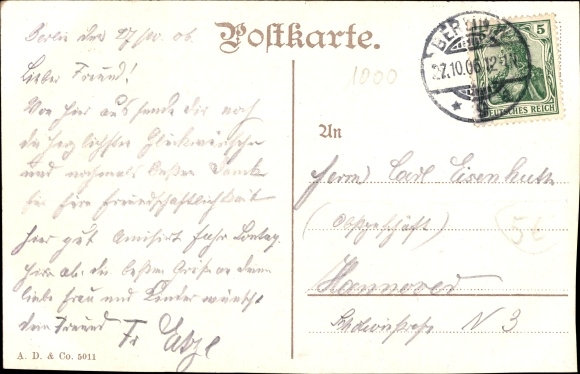 Postkarte.
BERLIN
27.10.06.12-1N.
5
DEUTSCHES REICH
1000
Berlin den 27/10. 06.
Lieber Freund!
Von hier aus sende dir noch
die herzlichsten Glückwünsche
und nochmals besten Dank
für Ihre Freundschaftlichkeit
hier gut amüsirt fahr Sontag
hier ab. die besten Grüße an deine
liebe Frau und Kinder wünscht
dein Freund
Fr
An
Herrn Carl Eisenhuth
(Obstgeschäft)
5€
Hannover
N 3
A. D. & Co. 5011